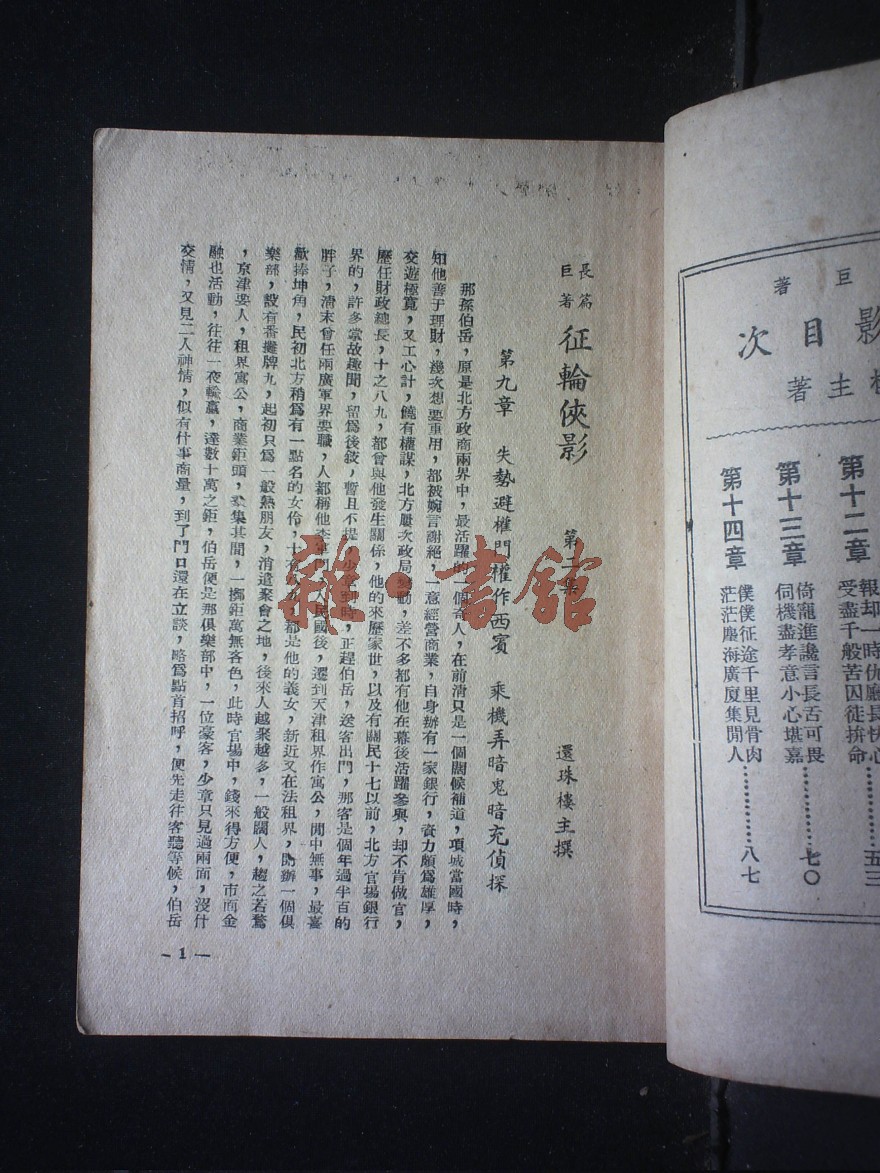 巨著
影目次
樓主著
第十二章
報却一時仇廳長快心
受盡千般苦囚徒拚命…………五三
第十三章
倚寵進讒言長舌可畏
伺機盡孝意小心堪嘉…………七〇
第十四章
僕僕征途千里見骨肉
茫茫塵海廣廈集閒人…………八七
長篇巨著 征輪俠影 第二集 還珠樓主撰
第九章 失勢避權門權作西賓 乘機弄暗鬼暗充偵探
那孫伯岳，原是北方政商兩界中，最活躍的一個奇人，在前清只是一個關候補道，項城當國時，
知他善于理財，幾次想要重用，都被婉言謝絕，一意經營商業，自身辦有一家銀行，資力頗爲雄厚，
交遊極寬，又工心計，饒有權謀，北方屢次政局變動，差不多都有他在幕後活躍參與，却不肯做官，
歷任財政總長，十之八九，都曾與他發生關係，他的來歷家世，以及有關民十七以前，北方官場銀行
界的，許多掌故趣聞，留爲後敍，暫且不提，少章到時，正趕伯岳，送客出門，那客是個年過半百的
胖子，清末曾任兩廣軍界要職，人都稱他李軍門，入民國後，遷到天津租界作寓公，閒中無事，最喜
歡捧坤角，民初北方稍爲有一點名的女伶，十有八九，都是他的義女，新近又在法租界，開辦一個俱
樂部，設有番攤牌九，起初只爲一般熟朋友，消遣聚會之地，後來人越聚越多，一般闊人，趨之若鶩
，京津要人，租界寓公，商業鉅頭，羣集其間，一擲鉅萬無吝色，此時官場中，錢來得方便，市面金
融也活動，往往一夜輸贏，達數十萬之鉅，伯岳便是那俱樂部中，一位豪客，少章只見過兩面，沒什
交情，又見二人神情，似有什事商量，到了門口還在立談，略爲點首招呼，便先走往客聽等候，伯岳
— 1 —
雜·書館